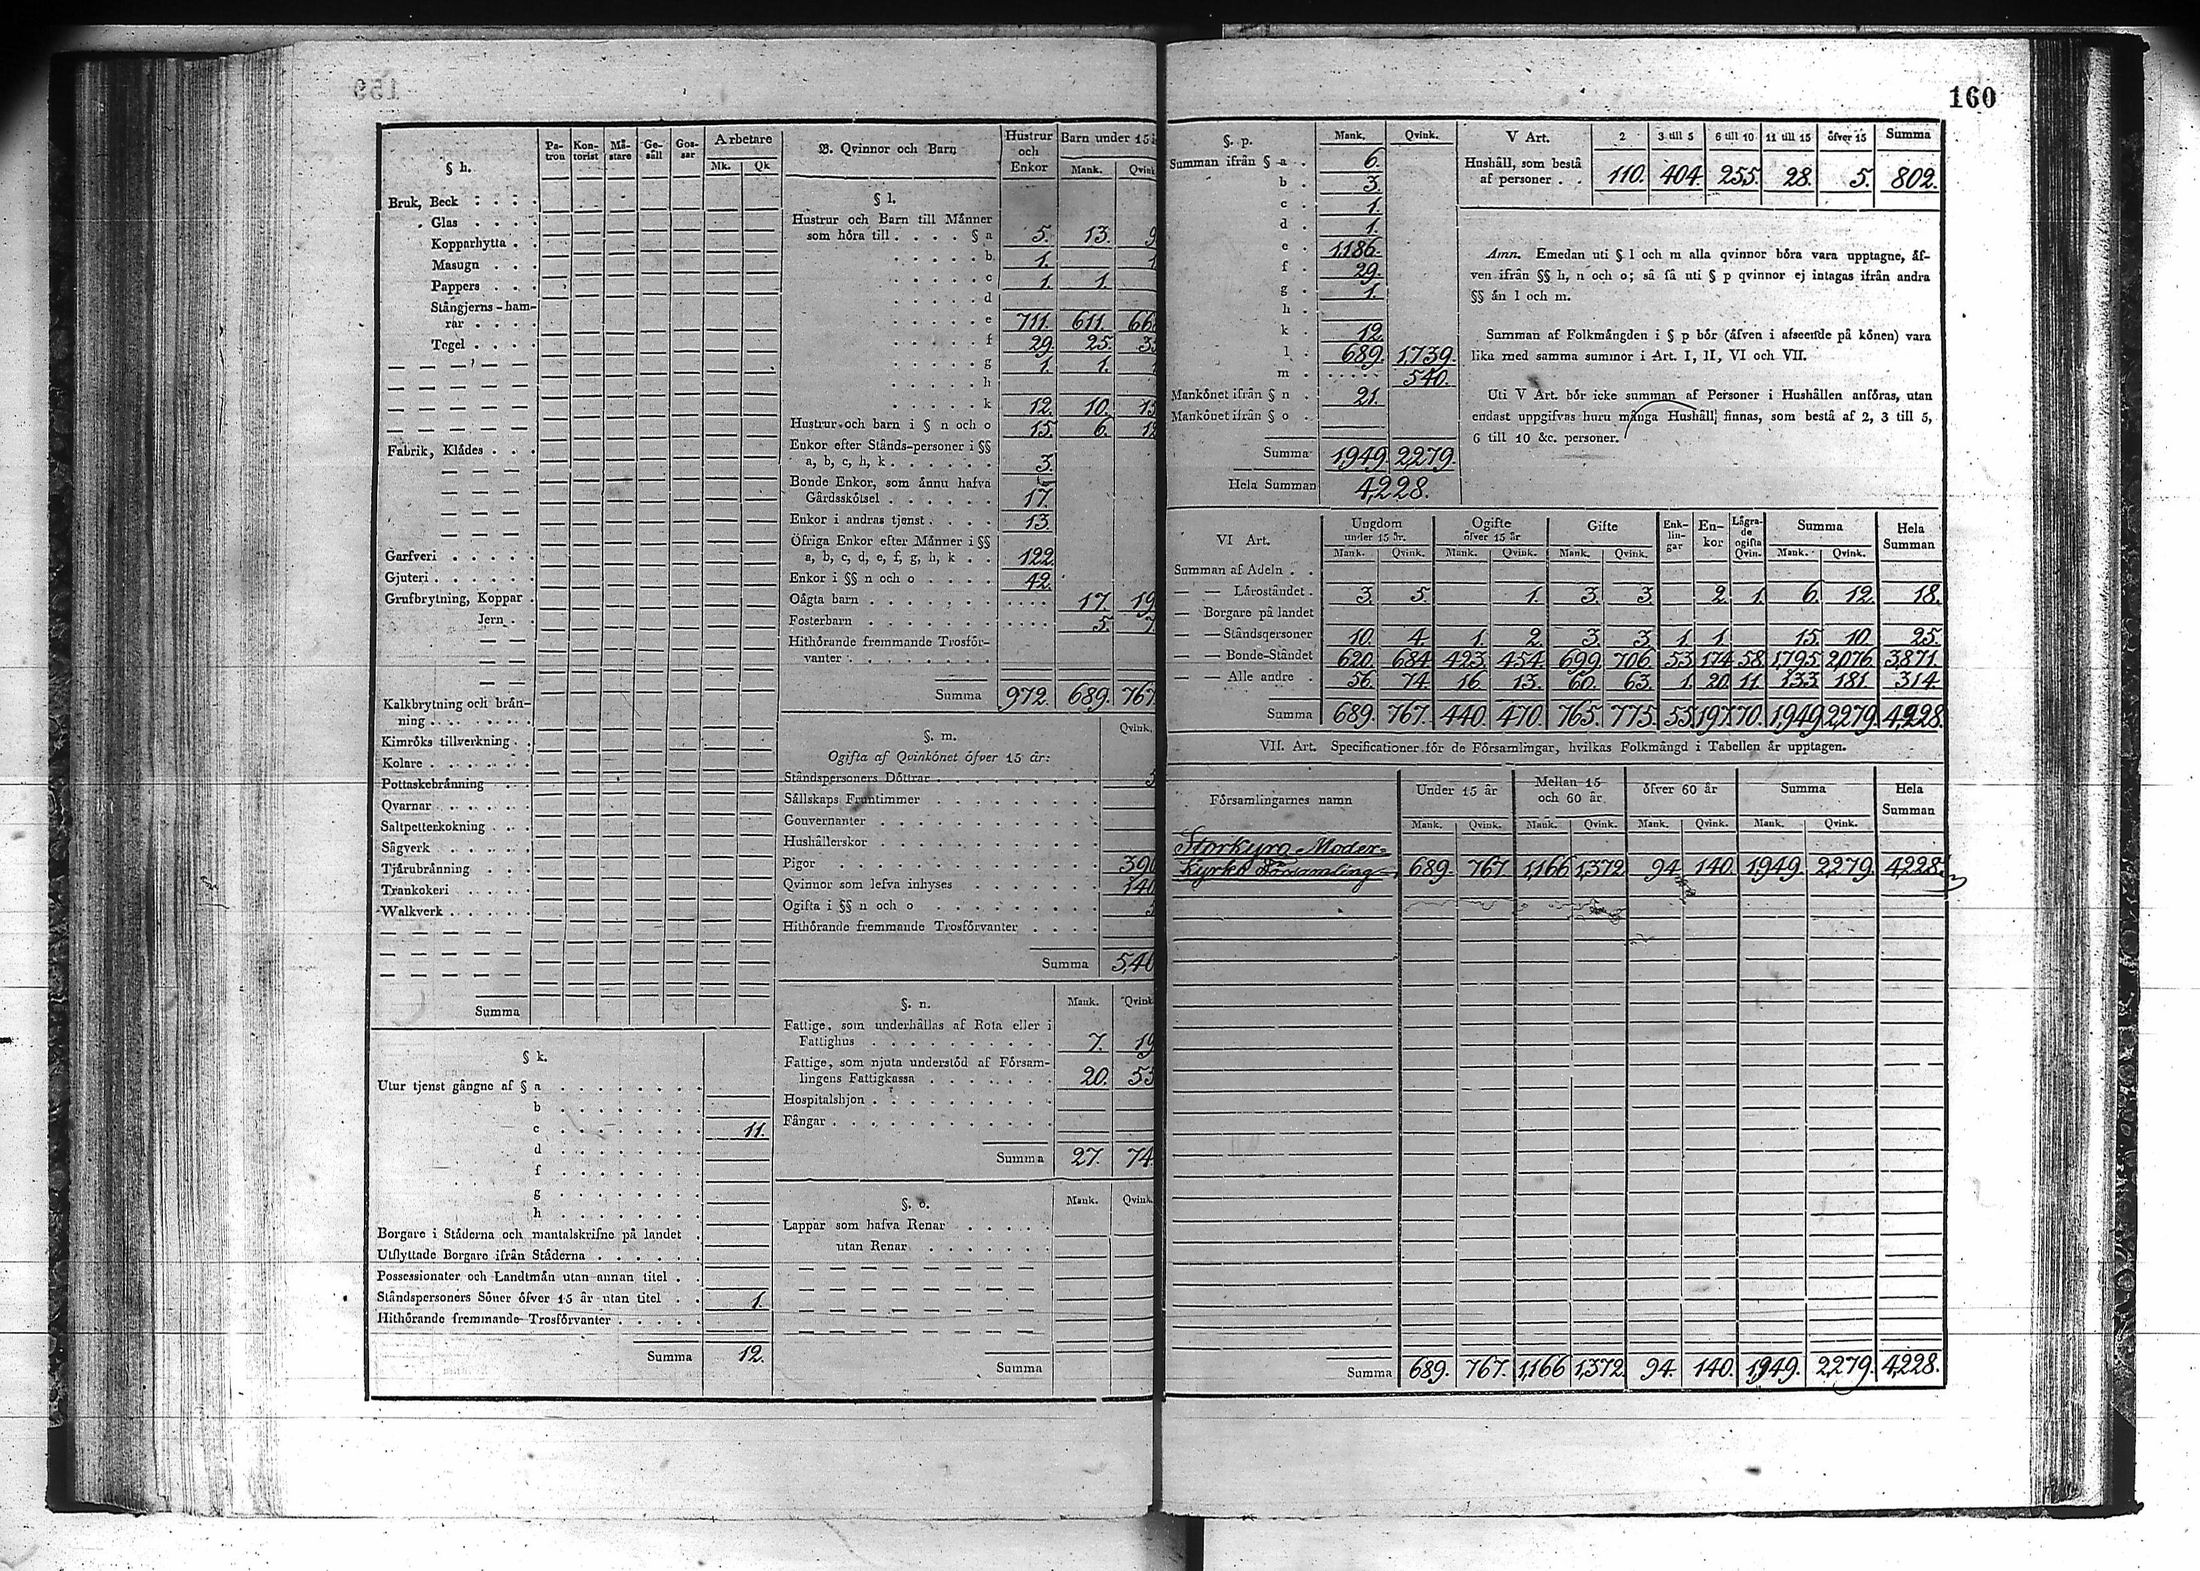 159
160
§ h.
Pa-tron Kon-torist Må-stare Ge-säll Gos-sar Arbetare
Mk. Qk
Bruk, Beck
Glas
Kopparhytta
Masugn
Pappers
Stångjerns-ham-
rar
Tegel
Fabrik, Klådes
Garfveri
Gjuteri
Grufbrytning, Koppar
Jern
Kalkbrytning och brån-
ning
Kimróks tillverkning
Kolare
Pottaskebrånning
Qvarnar
Saltpetterkokning
Sågverk
Tjårubrånning
Trankokeri
Walkverk
Summa
§ k.
Utur tjenst gångne af § a
b
c 11.
d
f
g
h
Borgare i Städerna och mantalskrifne på landet
Utflyttade Borgare ifrån Städerna
Possessionater och Landtmån utan annan titel
Ståndspersoners Söner öfver 15 år utan titel 1.
Hithörande fremmande Trosförvanter
Summa 12.
B. Qvinnor och Barn Hustrur och Enkor Barn under 15
Mank. Qvink
§ l.
Hustrur och Barn till Männer
som höra till § a 5. 13. 9
b 1. 1
c 1. 1.
d
e 711. 611. 66
f 29. 25. 3
g 1. 1. 1
h
k 12. 10. 15
Hustrur och barn i § n och o 15. 6. 12
Enkor efter Stånds-personer i §§
a, b, c, h, k 3.
Bonde Enkor, som ännu hafva
Gårdsskötsel 17.
Enkor i andras tjenst 13.
Öfriga Enkor efter Männer i §§
a, b, c, d, e, f, g, h, k 122.
Enkor i §§ n och o 42.
Oägta barn 17. 19
Fosterbarn 5. 7.
Hithörande fremmande Trosför-
vanter
Summa 972. 689. 767.
§. m. Qvink.
Ogifta af Qvinkönet öfver 15 år:
Ståndspersoners Döttrar 3
Sällskaps Fruntimmer
Gouvernanter
Hushållerskor
Pigor 390
Qvinnor som lefva inhyses 140
Ogifta i §§ n och o
Hithörande fremmande Trosförvanter
Summa 540
§. n. Mank. Qvink
Fattige, som underhållas af Rota eller i
Fattighus 7. 19
Fattige, som njuta understöd af Försam-
lingens Fattigkassa 20. 55
Hospitalshjon
Fångar
Summa 27. 74.
§. o. Mank. Qvink.
Lappar som hafva Renar
utan Renar
Summa
§. p. Mank. Qvink.
Summan ifrån § a 6.
b 3.
c 1.
d 1.
e 1,186.
f 29.
g 1.
h
k 12.
l 689. 1,739.
m 540.
Mankönet ifrån § n 21.
Mankönet ifrån § o
Summa 1,949. 2,279.
Hela Summan 4,228.
V Art. 2 3 till 5 6 till 10 11 till 15 öfver 15 Summa
Hushåll, som bestå
af personer 110. 404. 255. 28. 5. 802.
Anm. Emedan uti § l och m alla qvinnor böra vara upptagne, äf-
ven ifrån §§ h, n och o; så få uti § p qvinnor ej intagas ifrån andra
§§ än l och m.
Summan af Folkmängden i § p bör (äfven i afseende på könen) vara
lika med samma summor i Art. I, II, VI och VII.
Uti V Art. bör icke summan af Personer i Hushållen anföras, utan
endast uppgifvas huru många Hushåll finnas, som bestå af 2, 3 till 5,
6 till 10 &c. personer.
VI Art. Ungdom under 15 år. Ogifte öfver 15 år Gifte Enk-lin-gar En-kor Lägra-de ogifta Qvin. Summa Hela Summan
Mank. Qvink. Mank. Qvink. Mank. Qvink. Mank. Qvink.
Summan af Adeln
— — Läroståndet 3. 5. 1. 3. 3. 2. 1. 6. 12. 18.
— Borgare på landet
— — Ståndspersoner 10. 4. 1. 2. 3. 3. 1. 1. 15. 10. 25.
— — Bonde-Ståndet 620. 684. 423. 454. 699. 706. 53. 174. 58. 1,795. 2,076. 3,871.
— — Alle andre 56. 74. 16. 13. 60. 63. 1. 20. 11. 133. 181. 314.
Summa 689. 767. 440. 470. 765. 775. 55. 197. 70. 1,949. 2,279. 4,228.
VII. Art. Specificationer för de Församlingar, hvilkas Folkmängd i Tabellen är upptagen.
Församlingarnes namn Under 15 år Mellan 15 och 60 år öfver 60 år Summa Hela Summan
Mank. Qvink. Mank. Qvink. Mank. Qvink. Mank. Qvink.
Storkyro Moder=
Kyrko Församling 689. 767. 1,166. 1,372. 94. 140. 1,949. 2,279. 4,228.
Summa 689. 767. 1,166 1,372. 94. 140. 1,949. 2,279. 4,228.